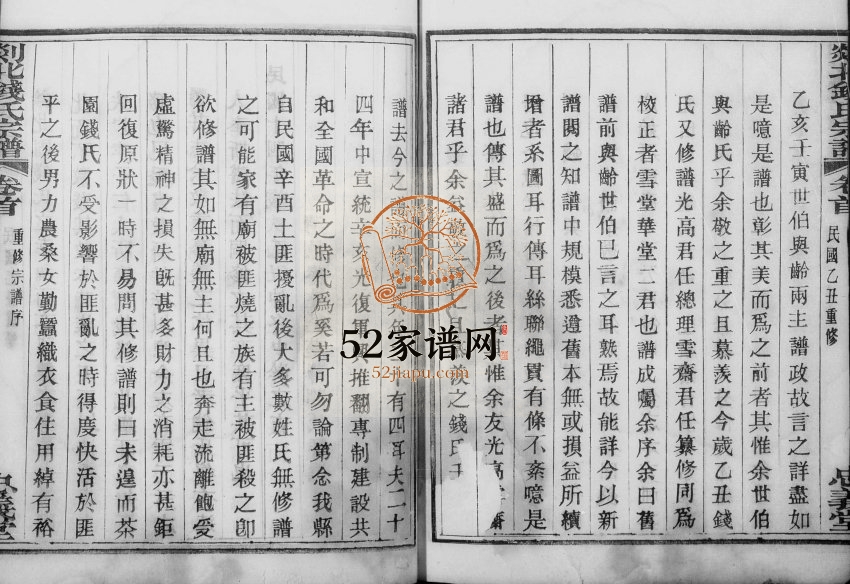 剡北錢氏宗譜 卷首
民國乙丑重修
忠義堂
乙亥壬寅世伯與齡兩主譜政故言之詳盡如
是噫是譜也彰其美而爲之前者其惟余世伯
與齡氏乎余敬之重之且慕羨之今歲乙丑錢
氏又修譜光高君任總理雪齋君任纂修同爲
校正者雪堂華堂二君也譜成囑余序余曰舊
譜前與齡世伯已言之耳熟焉故能詳今以新
譜閱之知譜中規模悉遵舊本無或損益所續
增者系圖耳行傳耳絲聯繩貫有條不紊噫是
譜也傳其盛而爲之後者其惟余友光高
諸君乎余益敬之 之錢氏
譜去今之 有四耳夫二十
四年中宣統辛亥光復軍興推翻專制建設共
和全國革命之時代爲奚若可勿論第念我縣
自民國辛酉土匪擾亂後大多數姓氏無修譜
之可能家有廟被匪燒之族有主被匪殺之卽
欲修譜其如無廟無主何且也奔走流離飽受
虛驚精神之損失旣甚多財力之消耗亦甚鉅
回復原狀一時不易問其修譜則曰未遑而茶
園錢氏不受影響於匪亂之時得度快活於匪
平之後男力農桑女勤蠶織衣食住用綽有裕
剡北錢氏宗譜 卷首
重修宗譜序
忠義堂
52家谱网
52jiapu.com